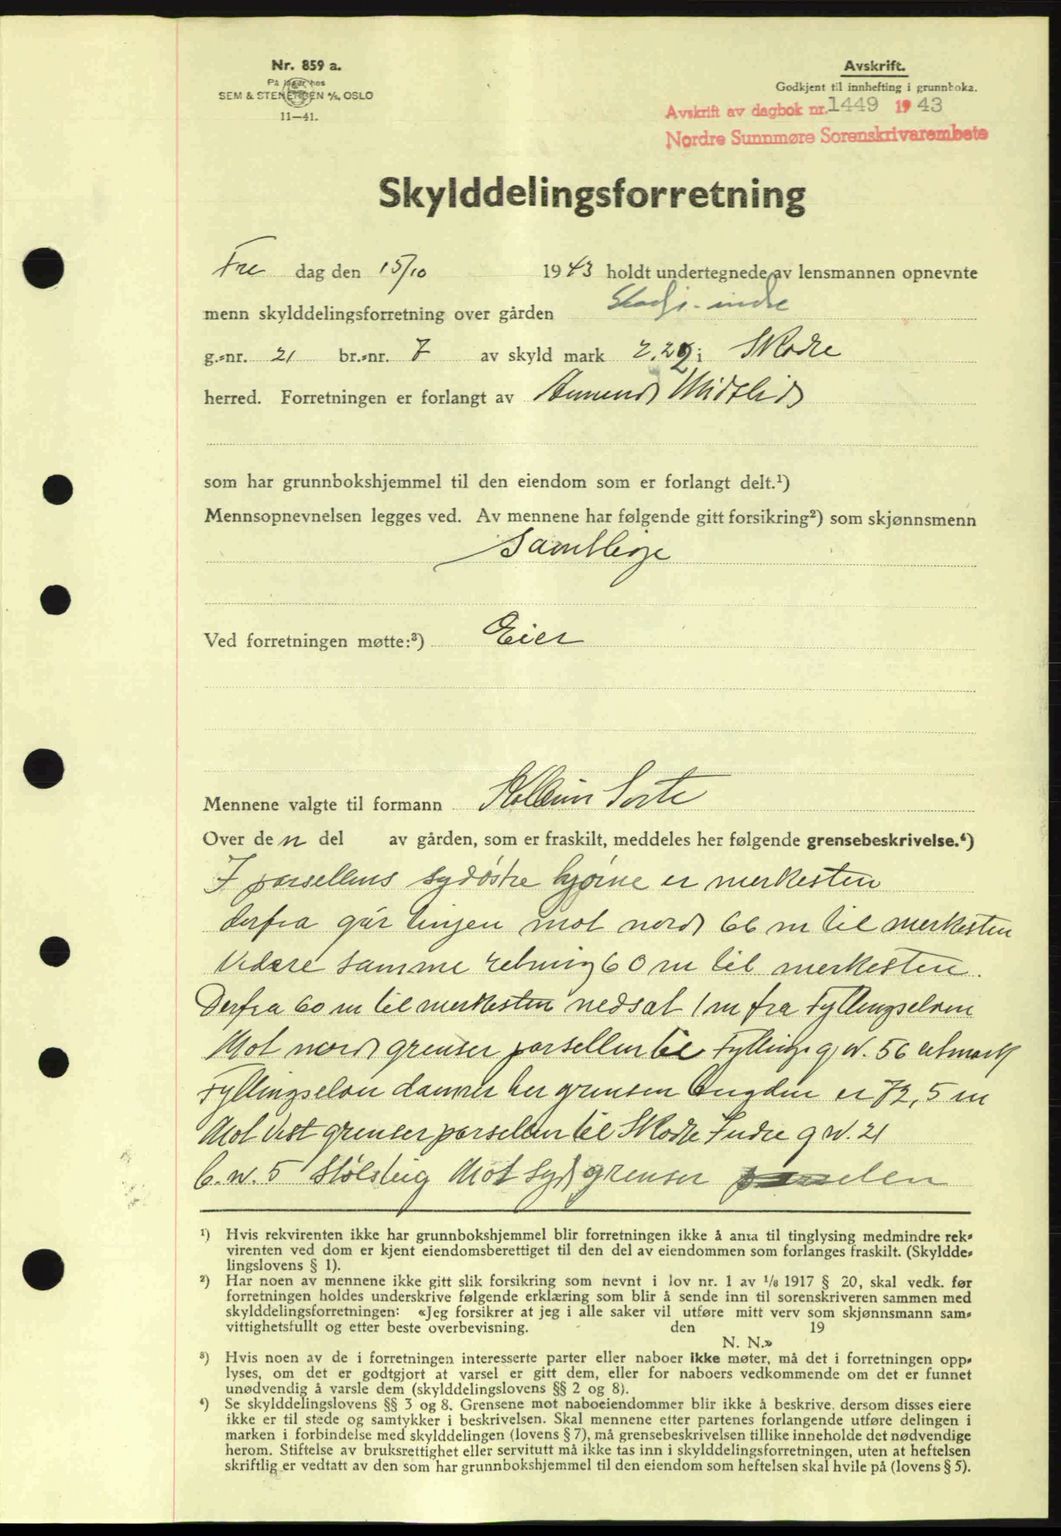 Nr. 859 a.
På lager hos
SEM & STENERSEN A/S, OSLO
11-41.
Avskrift.
Godkjent til innhefting i grunnboka.
Avskrift av dagbok nr. 1449 1943
Nordre Sunnmøre Sorenskrivarembete
Skylddelingsforretning
Fre dag den 15/10 1943 holdt undertegnede av lensmannen opnevnte
menn skylddelingsforretning over gården Skodje-indre
g.-nr. 21 br.-nr. 7 av skyld mark 2.29 i Skodje
herred. Forretningen er forlangt av Amund Midtlid
som har grunnbokshjemmel til den eiendom som er forlangt delt.¹)
Mennsopnevnelsen legges ved. Av mennene har følgende gitt forsikring²) som skjønnsmenn
Samtlige
Ved forretningen møtte:³) Eier
Mennene valgte til formann
Over de n del av gården, som er fraskilt, meddeles her følgende grensebeskrivelse.⁴)
I parsellens sydøstre hjørne er merkesten
derfra går linjen mot nord 66 m til merkesten
Videre samme retning 60 m til merkesten.
Derfra 60 m til merkesten nedsat 1 m fra Fyllingselven
Mot nord grenser parsellen til Fyllings g.n. 56 utmark
Fyllingselven danner her grensen lengden er 72,5 m
Mot Vest grenser parsellen til Skodje Indre g.n. 21
b.n. 5 Stølsteig Mot Syd grenser parsellen
¹) Hvis rekvirenten ikke har grunnbokshjemmel blir forretningen ikke å anta til tinglysing medmindre rek-
virenten ved dom er kjent eiendomsberettiget til den del av eiendommen som forlanges fraskilt. (Skyldde-
lingslovens § 1).
²) Har noen av mennene ikke gitt slik forsikring som nevnt i lov nr. 1 av 1/8 1917 § 20, skal vedk. før
forretningen holdes underskrive følgende erklæring som blir å sende inn til sorenskriveren sammen med
skylddelingsforretningen: «Jeg forsikrer at jeg i alle saker vil utføre mitt verv som skjønnsmann sam-
vittighetsfullt og etter beste overbevisning. den 19
N. N.»
³) Hvis noen av de i forretningen interesserte parter eller naboer ikke møter, må det i forretningen opp-
lyses, om det er godtgjort at varsel er gitt dem, eller for naboers vedkommende om det er funnet
unødvendig å varsle dem (skylddelingslovens §§ 2 og 8).
⁴) Se skylddelingslovens §§ 3 og 8. Grensene mot naboeiendommer blir ikke å beskrive, dersom disses eiere
ikke er til stede og samtykker i beskrivelsen. Skal mennene etter partenes forlangende utføre delingen i
marken i forbindelse med skylddelingen (lovens § 7), må grensebeskrivelsen tillike inneholde det nødvendige
herom. Stiftelse av bruksrettighet eller servitutt må ikke tas inn i skylddelingsforretningen, uten at heftelsen
skriftlig er vedtatt av den som har grunnbokshjemmel til den eiendom som heftelsen skal hvile på (lovens § 5).